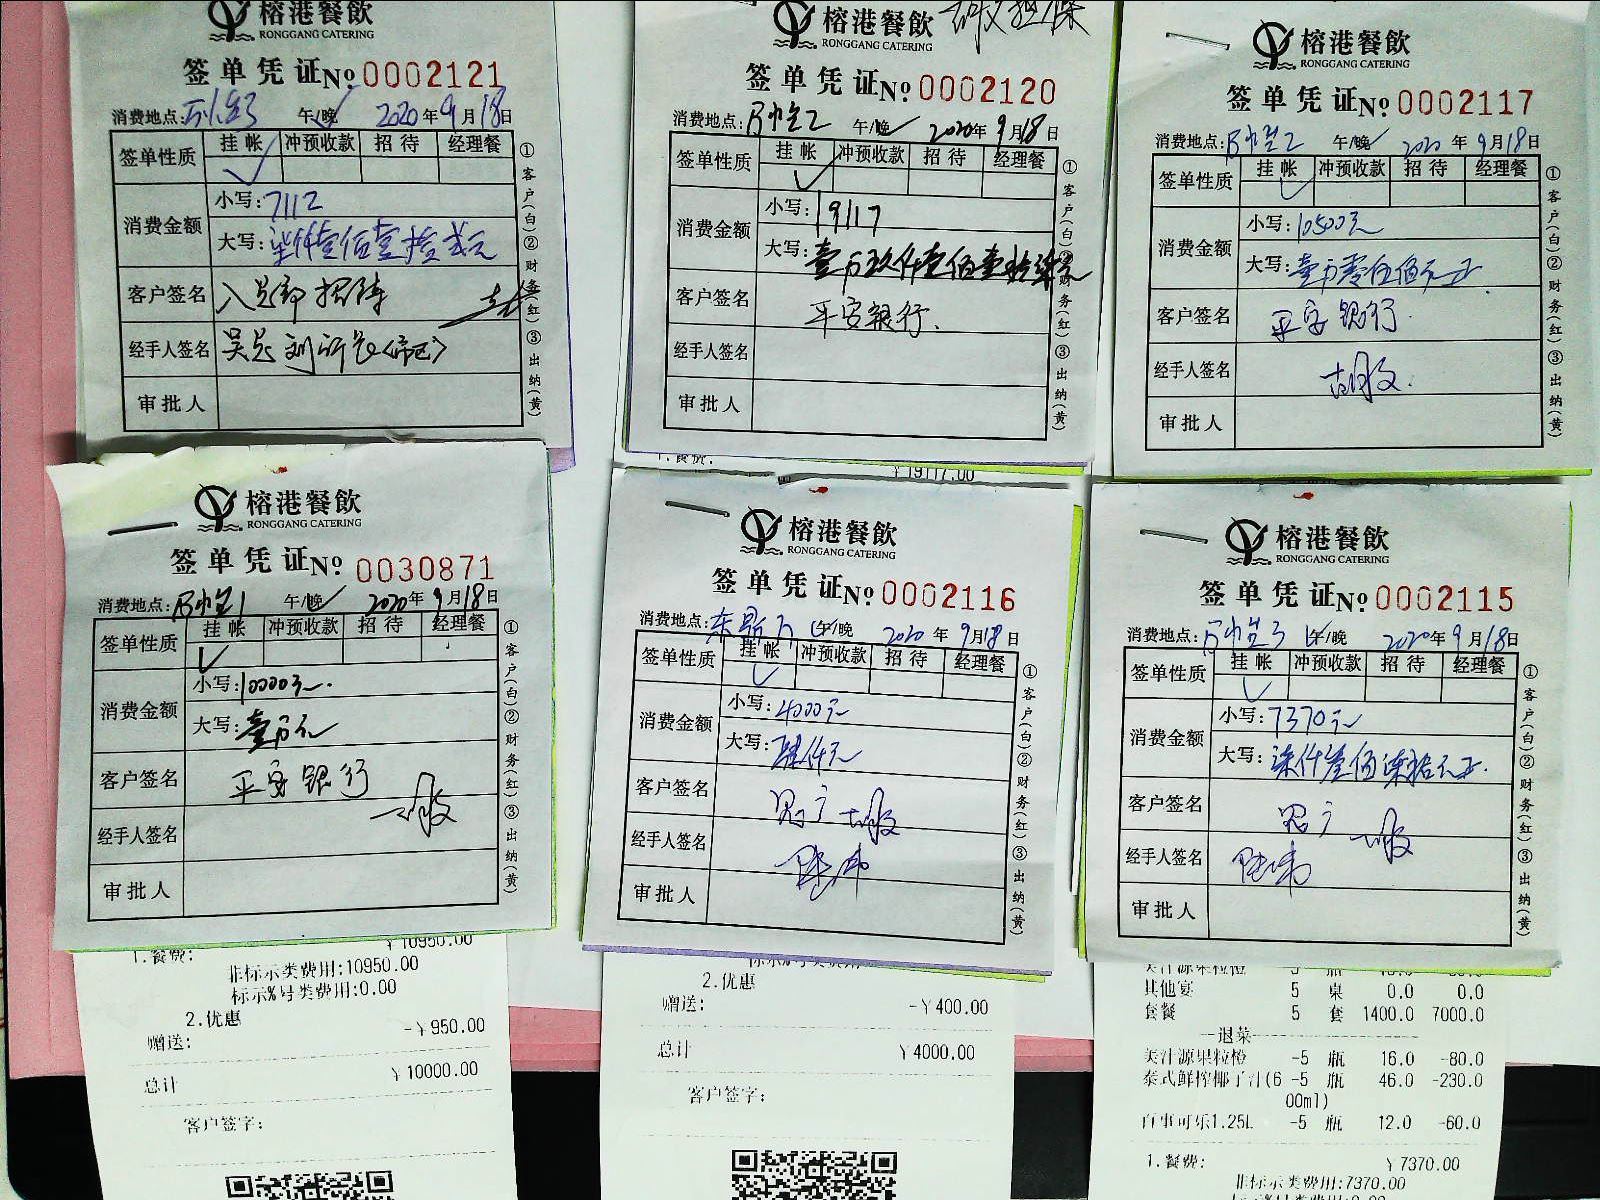 榕港餐飲
RONGGANG CATERING
签单凭证 No 0002121
消费地点: 午/晚 2020年9月18日
签单性质 挂帐 冲预收款 招待 经理餐
消费金额 小写: 7112
大写: 柒仟壹佰壹拾贰元
客户签名
经手人签名
审批人
①客户(白)②财务(红)③出纳(黄)
榕港餐飲
RONGGANG CATERING
签单凭证 No 0002120
消费地点: 午/晚 2020年9月18日
签单性质 挂帐 冲预收款 招待 经理餐
消费金额 小写: 19117
大写: 壹万玖仟壹佰壹拾柒元
客户签名 平安银行.
经手人签名
审批人
①客户(白)②财务(红)③出纳(黄)
1.餐费: ¥19117.00
榕港餐飲
RONGGANG CATERING
签单凭证 No 0002117
消费地点: 午/晚 2020年9月18日
签单性质 挂帐 冲预收款 招待 经理餐
消费金额 小写: 10500元
大写: 壹万零伍佰元正
客户签名 平安银行.
经手人签名
审批人
①客户(白)②财务(红)③出纳(黄)
榕港餐飲
RONGGANG CATERING
签单凭证 No 0030871
消费地点: 午/晚 2020年9月18日
签单性质 挂帐 冲预收款 招待 经理餐
消费金额 小写: 10000元.
大写: 壹万元
客户签名 平安银行
经手人签名
审批人
①客户(白)②财务(红)③出纳(黄)
1.餐费: ¥10950.00
非标示类费用:10950.00
标示%号类费用:0.00
2.优惠
赠送: -¥950.00
总计 ¥10000.00
客户签字:
榕港餐飲
RONGGANG CATERING
签单凭证 No 0002116
消费地点: 午/晚 2020年9月18日
签单性质 挂帐 冲预收款 招待 经理餐
消费金额 小写: 4000元
大写: 肆仟元
客户签名
经手人签名
审批人
①客户(白)②财务(红)③出纳(黄)
2.优惠
赠送: -¥400.00
总计 ¥4000.00
客户签字:
榕港餐飲
RONGGANG CATERING
签单凭证 No 0002115
消费地点: 午/晚 2020年9月18日
签单性质 挂帐 冲预收款 招待 经理餐
消费金额 小写: 7370元
大写: 柒仟叁佰柒拾元正.
客户签名
经手人签名
审批人
①客户(白)②财务(红)③出纳(黄)
美汁源果粒橙 5 瓶
其他宴 5 桌 0.0 0.0
套餐 5 套 1400.0 7000.0
退菜
美汁源果粒橙 -5 瓶 16.0 -80.0
泰式鲜榨椰子汁(6 -5 瓶 46.0 -230.0
00ml)
百事可乐1.25L -5 瓶 12.0 -60.0
1.餐费: ¥7370.00
非标示类费用:7370.00